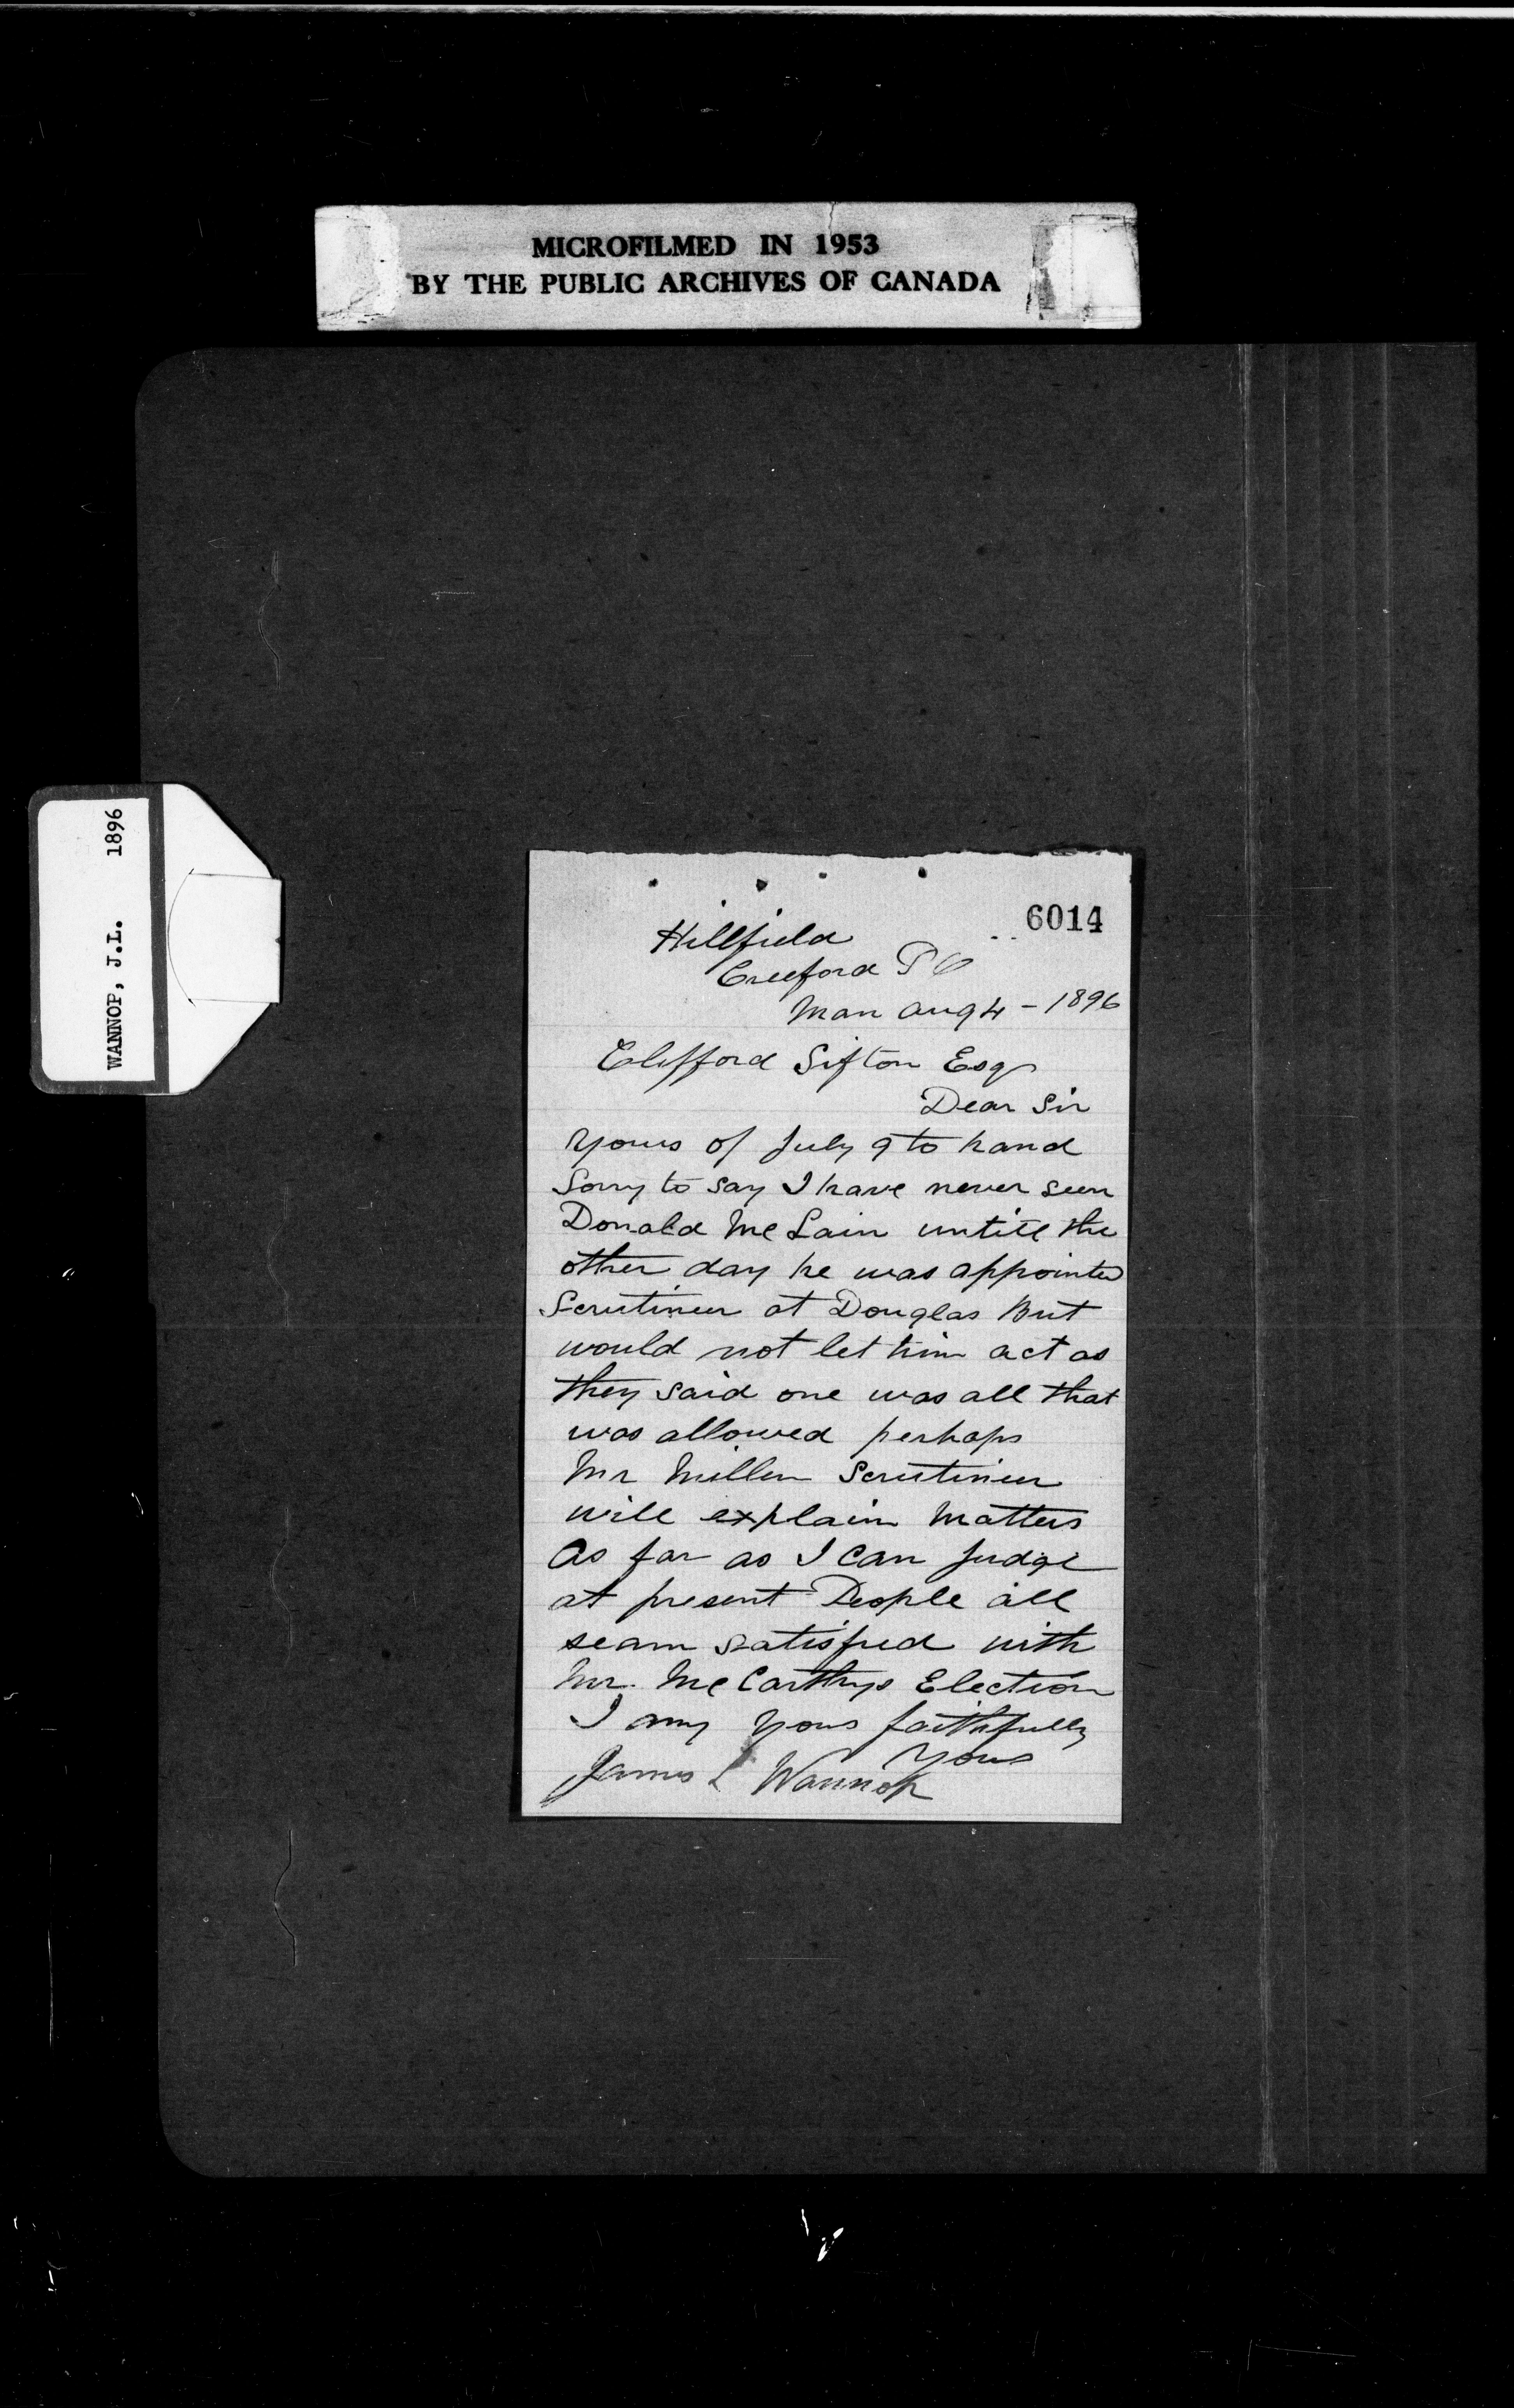 MICROFILMED IN 1953
BY THE PUBLIC ARCHIVES OF CANADA
WANNOP, J.L. 1896
6014
Hillfield
Creeford P O
Man Aug 4 - 1896
Clifford Sifton Esqr
Dear Sir
Yours of July 9 to hand
Sorry to say I have never seen
Donald McLain untill the
other day he was appointed
Scrutineer at Douglas But
would not let him act as
they said one was all that
was allowed perhaps
Mr Miller Scrutineer
will explain Matters
As far as I can judge
at present People all
seam satisfied with
Mr. McCarthys Election
I am yours faithfully
Yours
James L Wannop